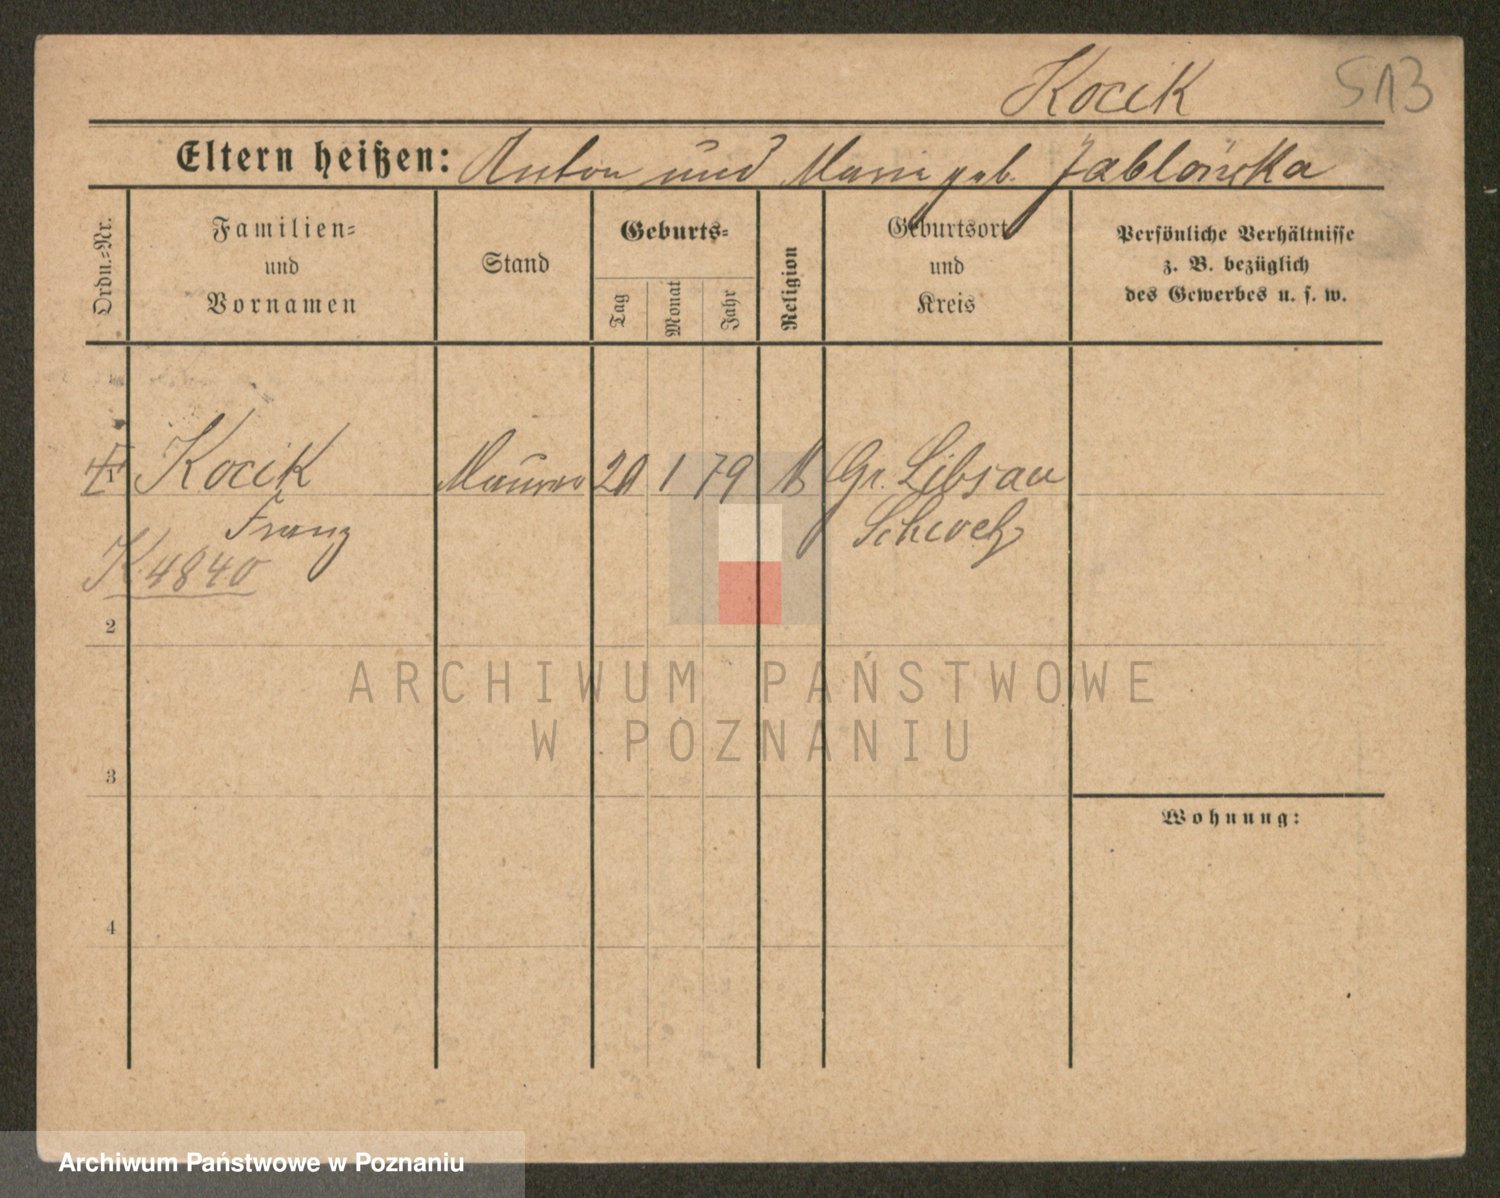 Kocik 513
Eltern heißen: Anton und Marie geb. Jablońska
Ordn.-Nr.
Familien-
und
Vornamen
Stand
Geburts-
Tag
Monat
Jahr
Religion
Geburtsort
und
Kreis
Persönliche Verhältnisse
z. B. bezüglich
des Gewerbes u. s. w.
Kocik Maurer 20 1 79 Gr. Libsau
Franz Schwetz
K 4840
2
3
4
Wohnung:
ARCHIWUM PAŃSTWOWE
W POZNANIU
Archiwum Państwowe w Poznaniu